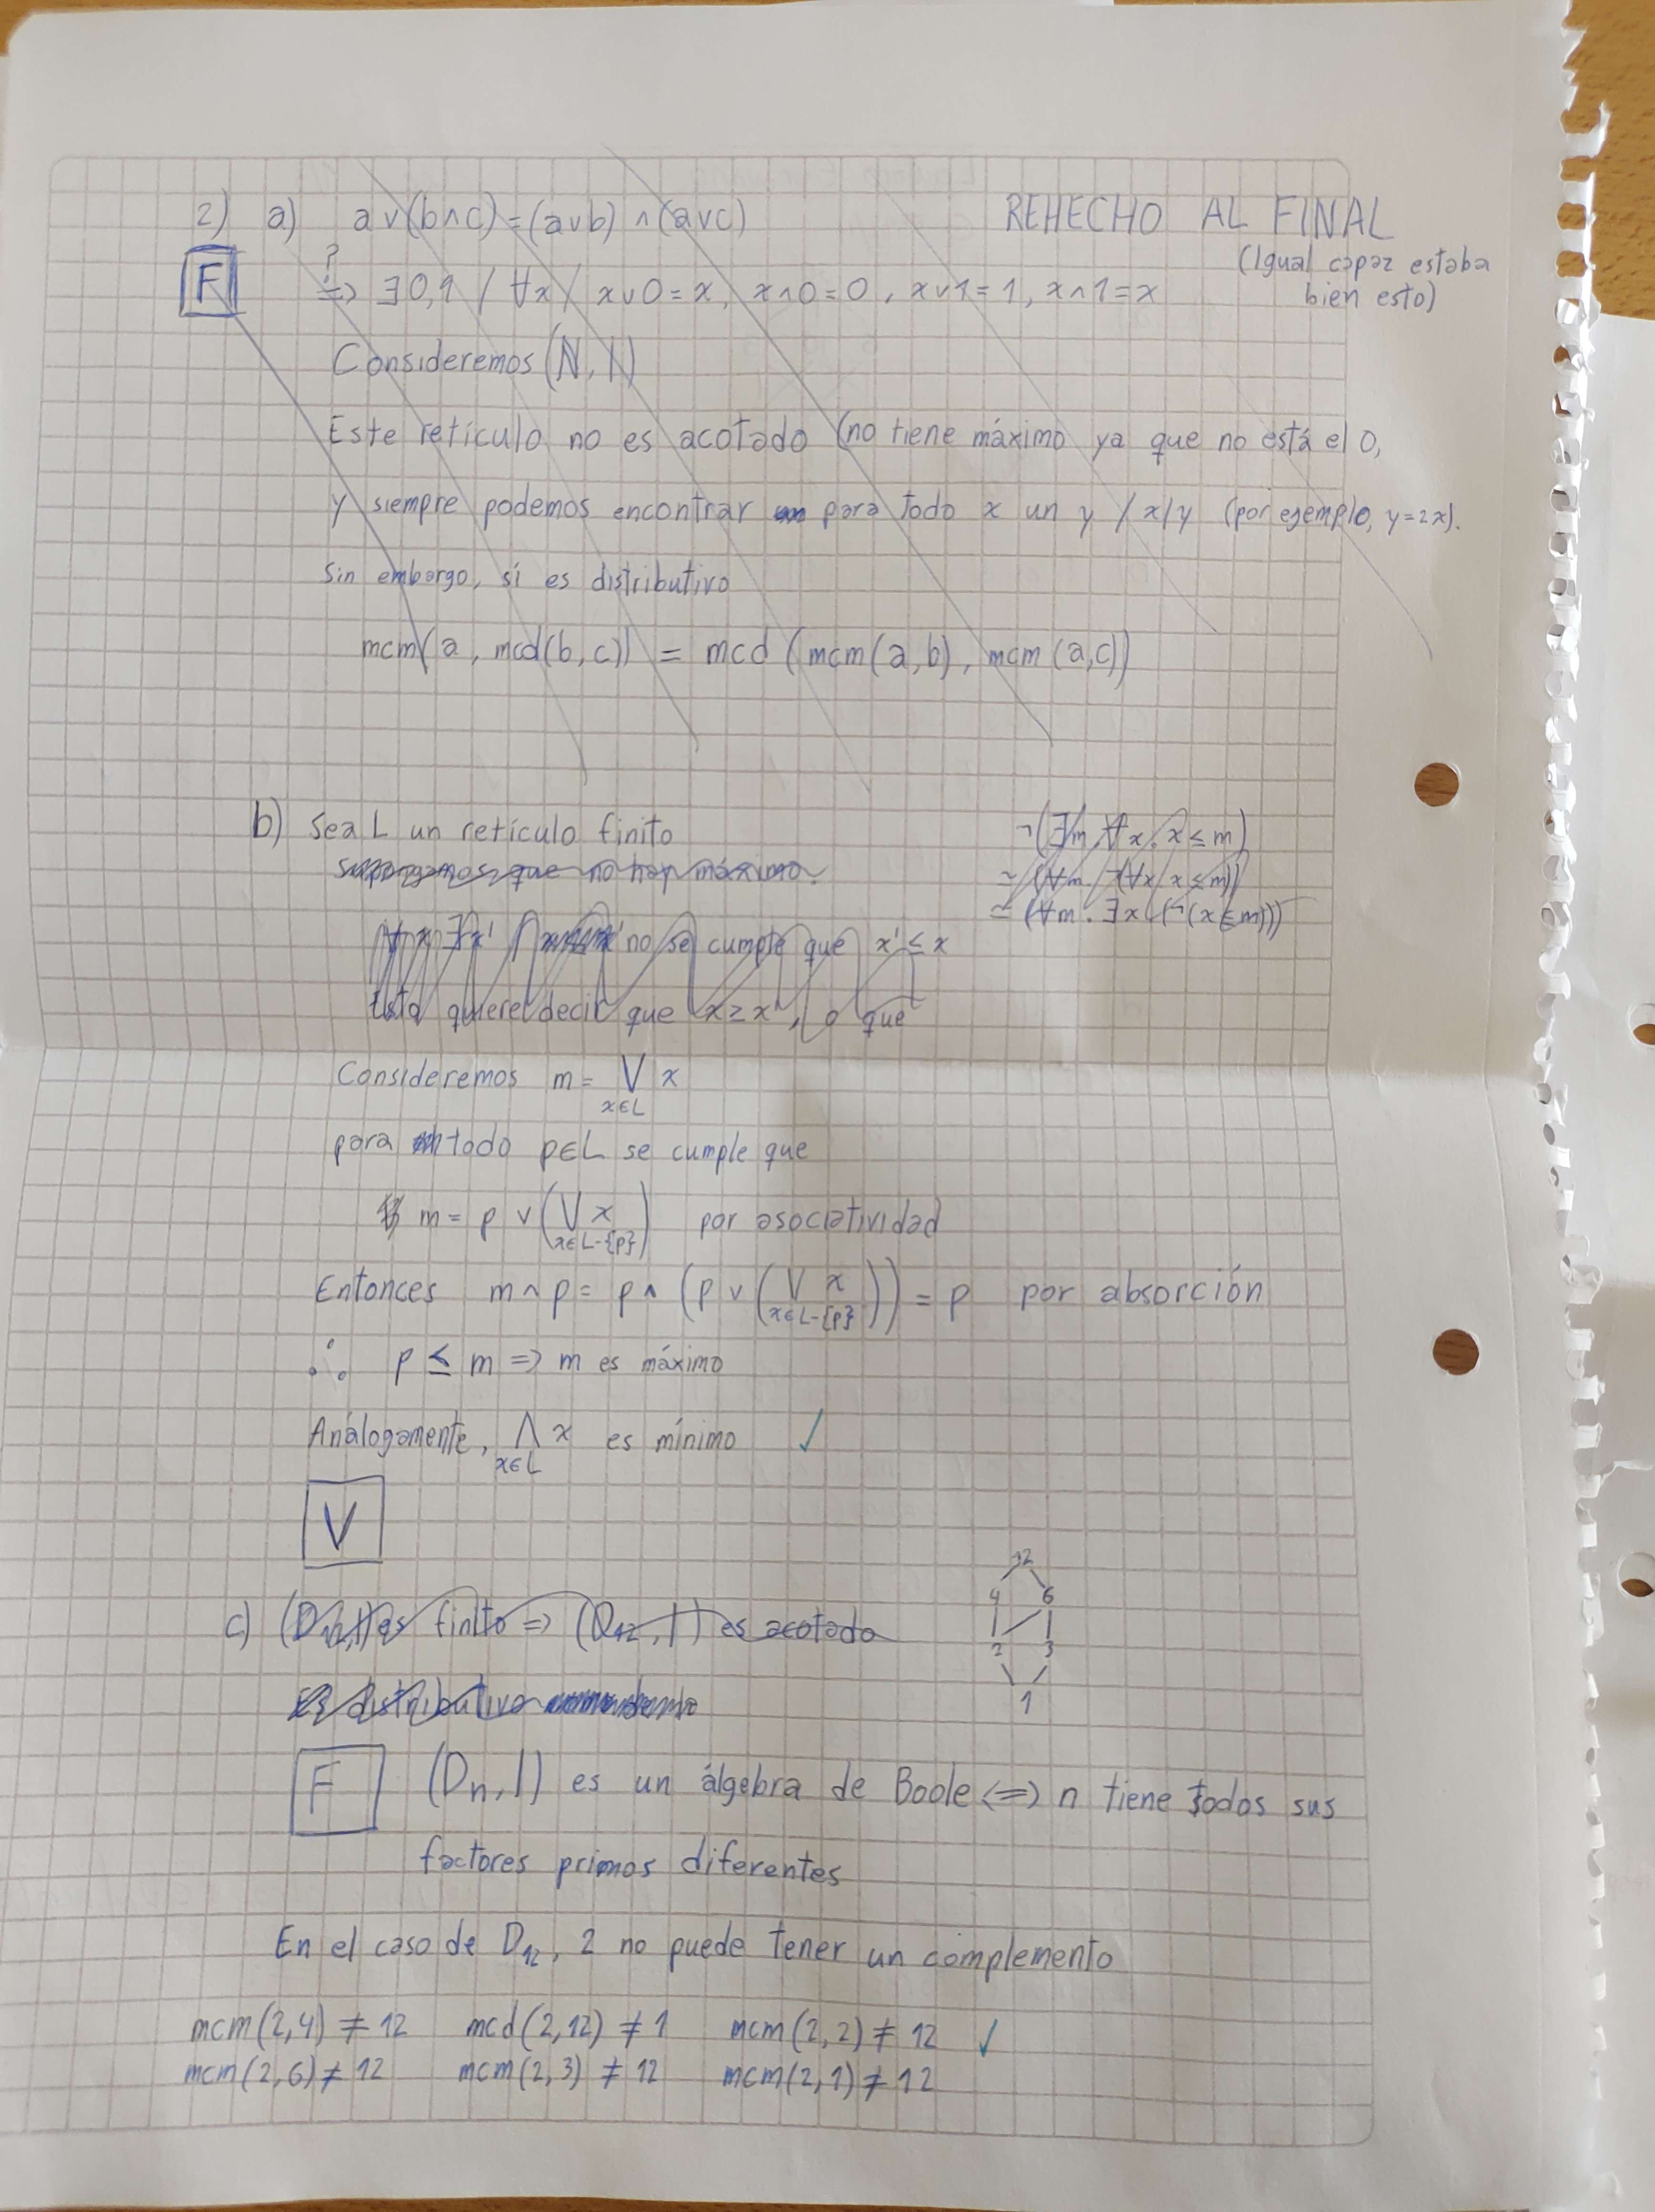 2) a) a∨(b∧c)=(a∨b)∧(a∨c)
REHECHO AL FINAL
(Igual capaz estaba
bien esto)
F
?
=> ∃0,1 / ∀x / x∨0=x, x∧0=0, x∨1=1, x∧1=x
Consideremos (ℕ, |)
Este retículo no es acotado (no tiene máximo ya que no está el 0,
y siempre podemos encontrar para todo x un y / x|y (por ejemplo, y=2x).
Sin embargo, sí es distributivo
mcm(a, mcd(b,c)) = mcd(mcm(a,b), mcm(a,c))
b) Sea L un retículo finito
Supongamos que no hay máximo.
¬(∃m.∀x. x≤m)
≃ (∀m. ¬(∀x/ x≤m))
≃ (∀m. ∃x (¬(x≤m)))
∀x ∃x' / no se cumple que x' ≤ x
Esto quiere decir que x≥x', o que
Consideremos m = ⋁ x
x∈L
para todo p∈L se cumple que
m = p ∨ (⋁ x) por asociatividad
x∈L-{p}
Entonces m∧p = p∧(p∨(⋁ x)) = p por absorción
x∈L-{p}
∴ p ≤ m => m es máximo
Análogamente, ⋀ x es mínimo ✓
x∈L
V
12
4 6
2 3
1
c) (D₁₂,|) es finito => (D₁₂,|) es acotado
Es distributivo
F (Dn,|) es un álgebra de Boole <=> n tiene todos sus
factores primos diferentes
En el caso de D₁₂, 2 no puede tener un complemento
mcm(2,4) ≠ 12 mcd(2,12) ≠ 1 mcm(2,2) ≠ 12 ✓
mcm(2,6) ≠ 12 mcm(2,3) ≠ 12 mcm(2,1) ≠ 12